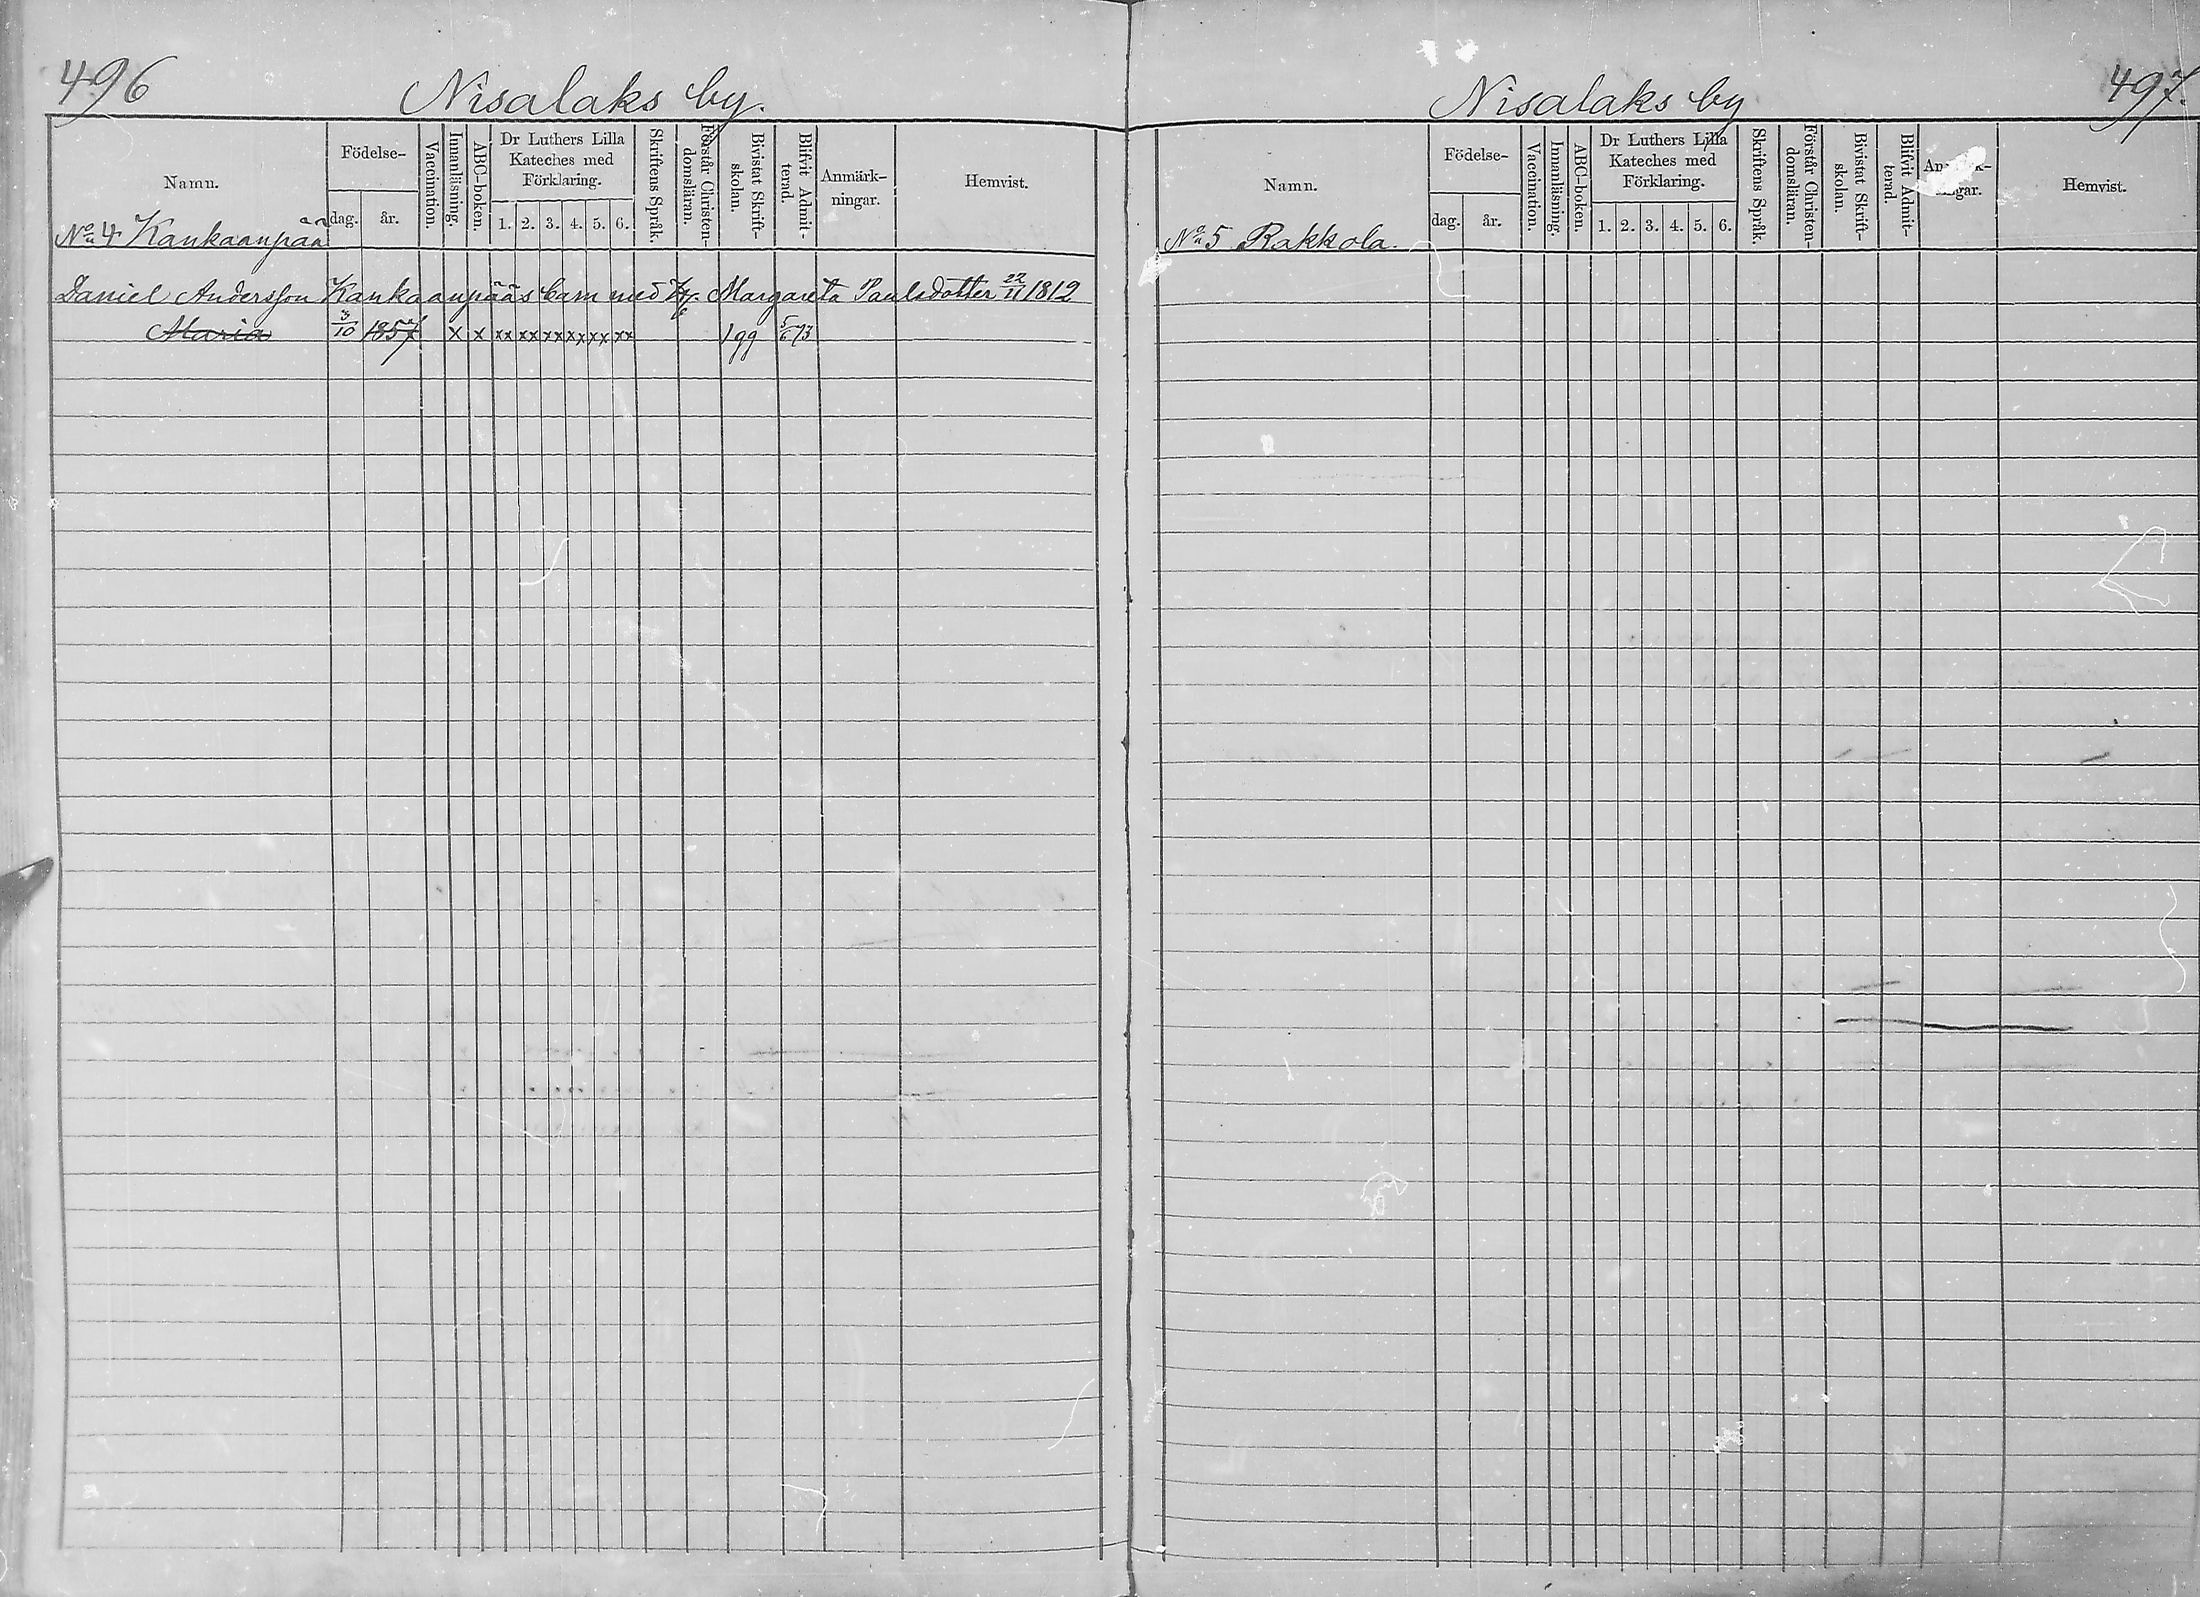 496
Nisalaks by.
Namn.
Födelse-
dag.
år.
Vaccination.
Innanläsning.
ABC-boken.
Dr Luthers Lilla
Kateches med
Förklaring.
1. 2. 3. 4. 5. 6.
Skriftens Språk.
Förstår Christen-
domsläran.
Bivistat Skrift-
skolan.
Blifvit Admit-
terad.
Anmärk-
ningar.
Hemvist.
No 4 Kankaanpää
Daniel Andersson Kankaanpääs barn med Margareta Paulsdotter 22/11 1812
Maria 3/10 1857 x x xx xx xx xx xx xx 1 gg 5/6 73
Nisalaks by
497.
Namn.
Födelse-
dag.
år.
Vaccination.
Innanläsning.
ABC-boken.
Dr Luthers Lilla
Kateches med
Förklaring.
1. 2. 3. 4. 5. 6.
Skriftens Språk.
Förstår Christen-
domsläran.
Bivistat Skrift-
skolan.
Blifvit Admit-
terad.
Hemvist.
No 5 Rakkola.